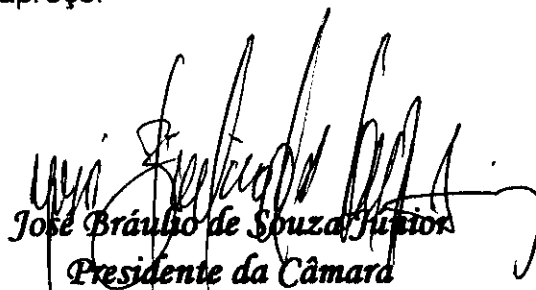 apreço.
José Bráulio de Souza Junior
Presidente da Câmara